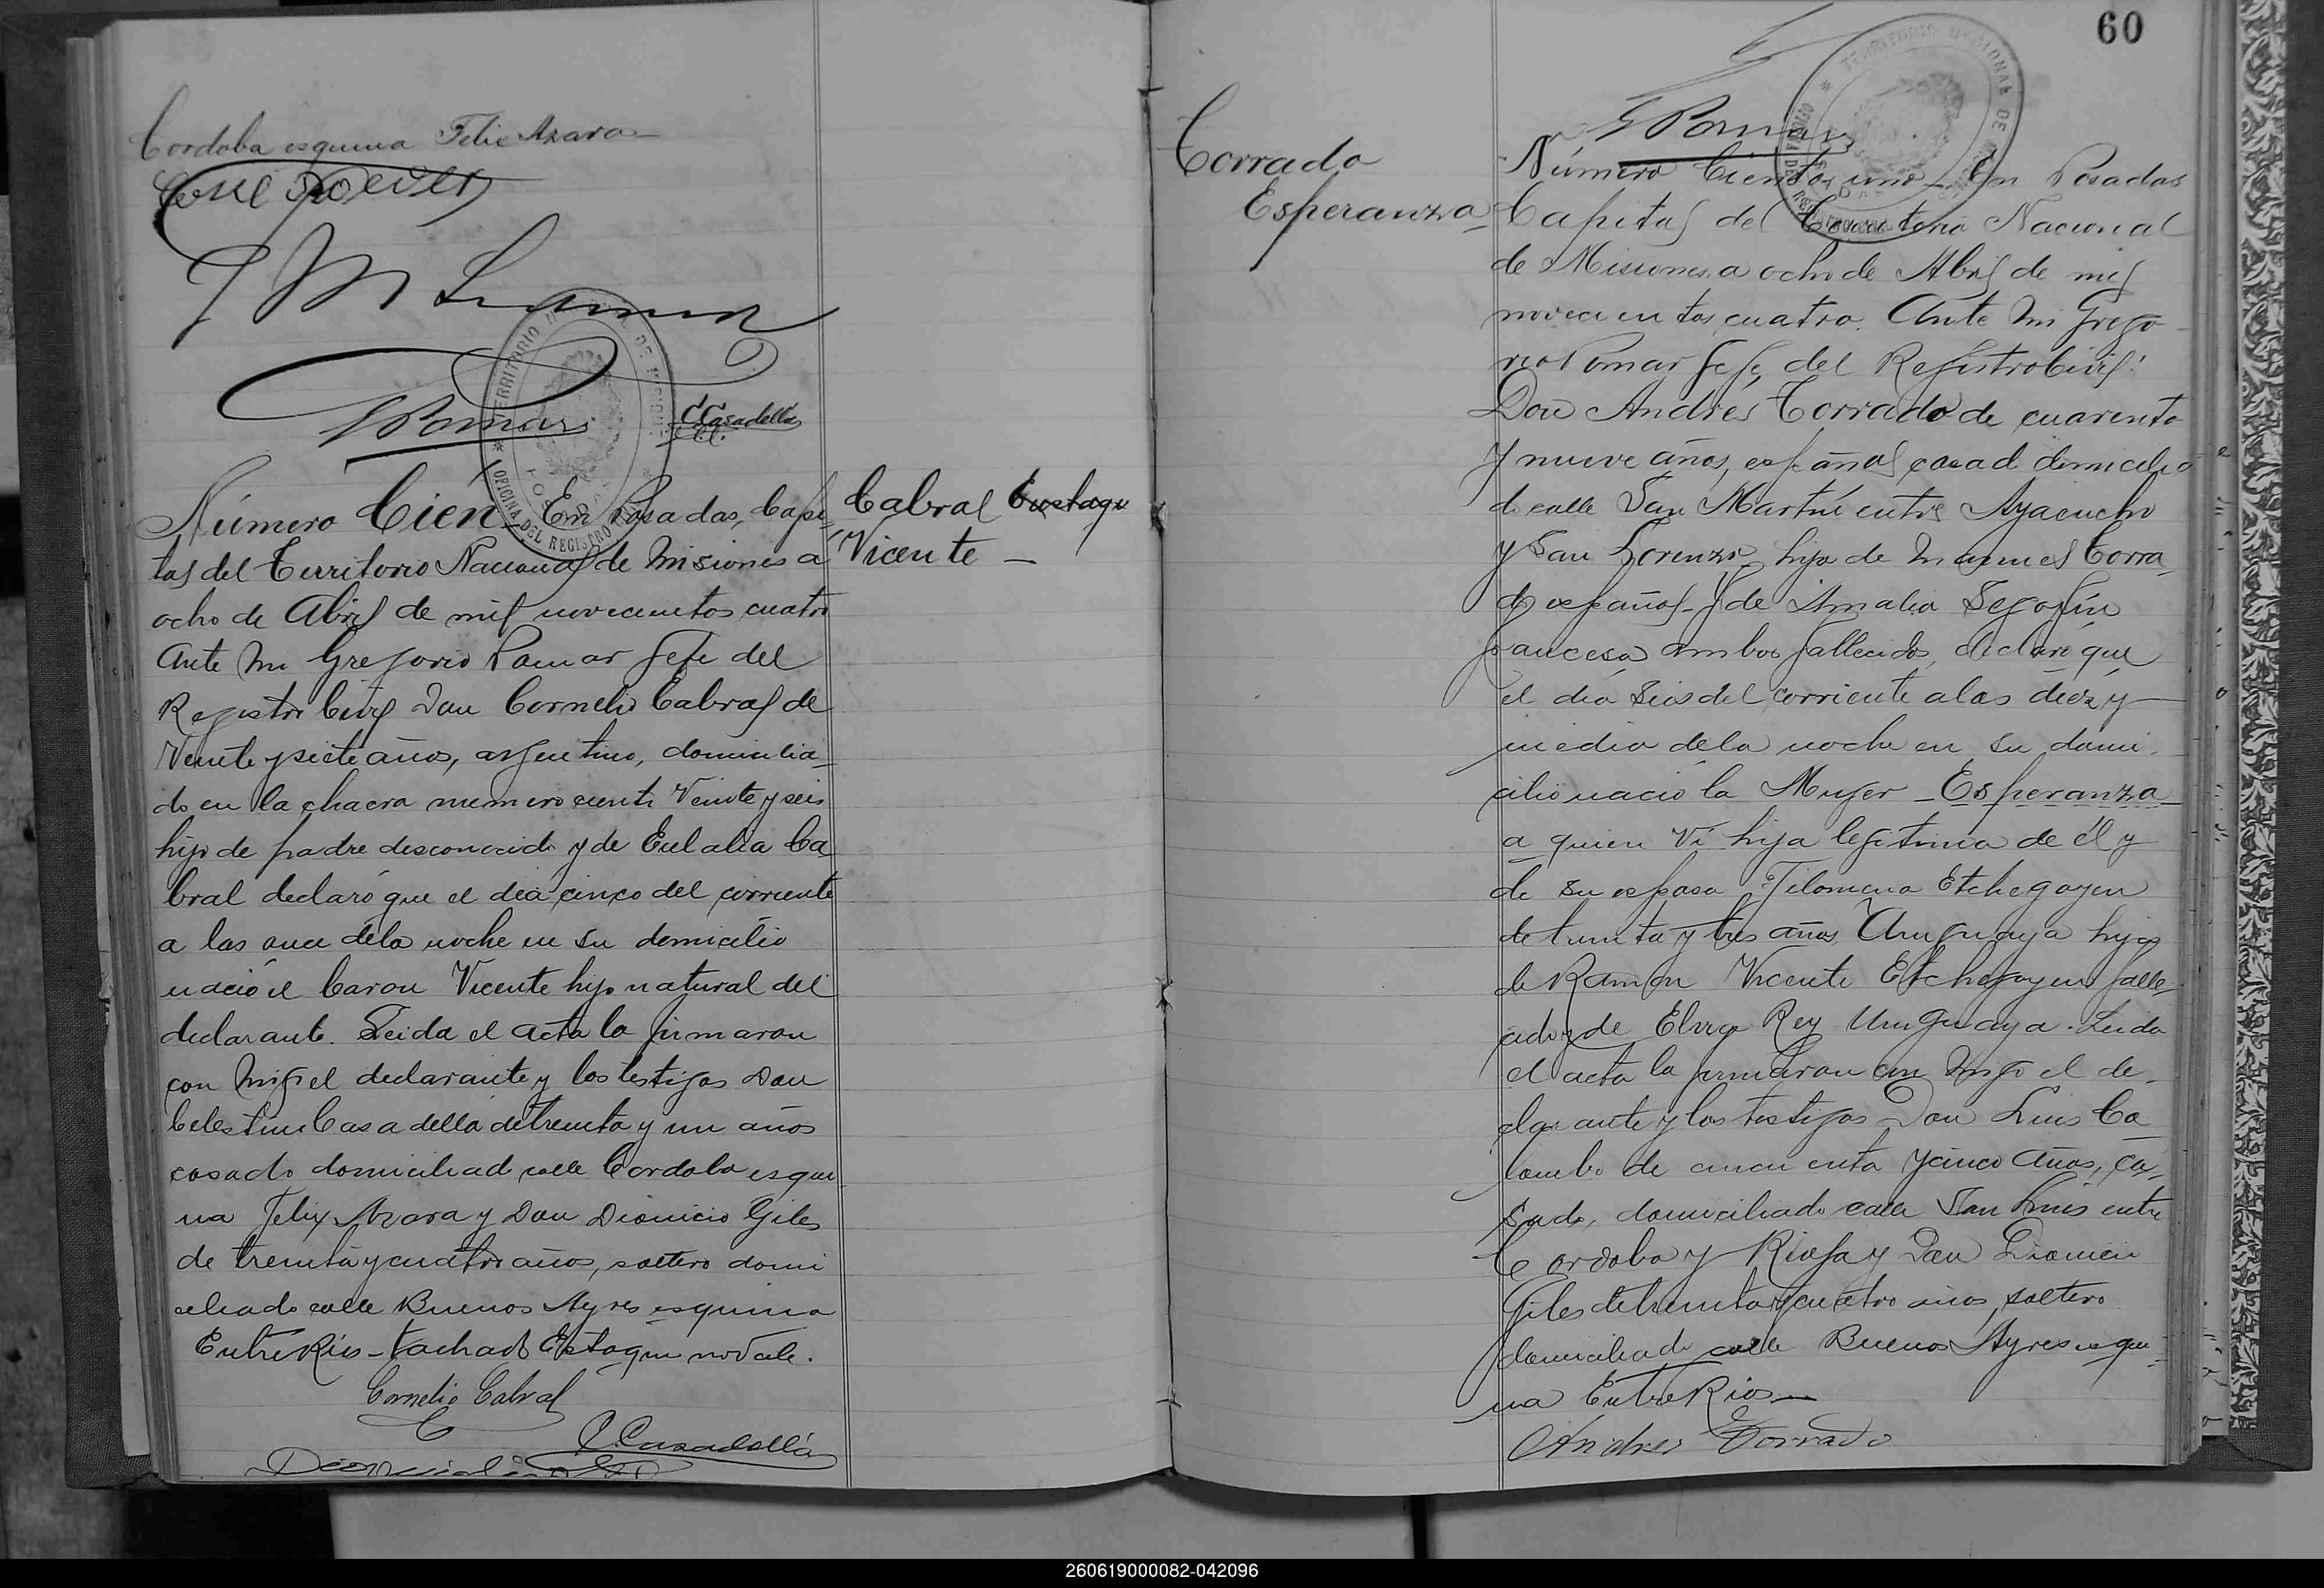 Cordoba esquina Felix Azara
C Casadella
Número Cien. En Posadas, Capi
tal del Territorio Nacional de Misiones a
ocho de Abril de mil novecientos cuatro
Ante mi Gregorio Pomar Jefe del
Registro Civil Don Cornelio Cabral de
Veinte y siete años, argentino, domicilia
do en la chacra numero ciento Veinte y seis
hijo de padre desconocido y de Eulalia Ca
bral declaró que el dia cinco del corriente
a las once de la noche en su domicilio
nació el Varon Vicente hijo natural del
declarante. Leida el acta la firmaron
con migo el declarante y los testigos Don
Celestino Casadella de treinta y un años
casado domiciliado calle Cordoba esqui
na Felix Azara y Don Dionicio Giles
de treinta y cuatro años, soltero domi
ciliado calle Buenos Ayres esquina
Entre Rios - tachado Estaqu no vale.
Cornelio Cabral
C. Casadella
Cabral
Vicente
60
Torrado
Esperanza
G Pomar
Número Ciento uno - En Posadas
Capital del Territorio Nacional
de Misiones, a ocho de Abril de mil
novecientos cuatro. Ante mi Grego
rio Pomar Jefe, del Registro Civil
Don Andrés Torrado de cuarenta
y nueve años, español casad domicilia
do calle San Martín entre Ayacucho
y San Lorenzo, hijo de Manuel Torra
do español y de Amalia
francesa ambos fallecidos, declaró que
el día seis del corriente a las diez y
media de la noche en su domi
cilio nació la Mujer - Esperanza
a quien Ví hija legitima de él y
de su esposa Filomena Etchegoyen
de treinta y tres años, Uruguaya hija
de Ramon Vicente Etchegoyen falle
cido y de Elvira Rey Uruguaya. Leida
el acta la firmaron con migo el de
clarante y los testigos Don Luis Co
lombo de cincuenta y cinco años, ca
sado, domiciliado calle San Luis entre
Cordoba y Rioja y Don Dionicio
Giles de treinta y cuatro años, soltero
domiciliado calle Buenos Ayres esqui
na Entre Rios
Andres Torrado
TERRITORIO NACIONAL DE MISIONES
OFICINA DEL REGISTRO CIVIL
POSADAS
260619000082-042096